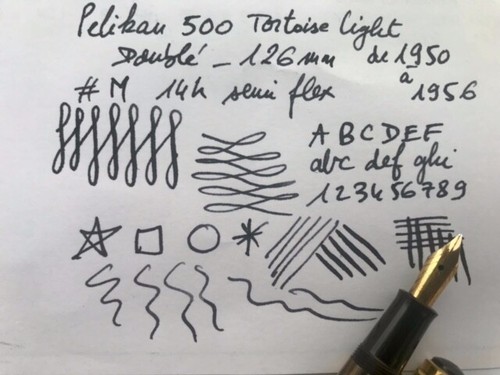 Pelikan 500 Tortoise light
Doublé - 126 mm de 1950
à
# M 14k semi flex 1956
A B C D E F
abc def ghi
1 2 3 4 5 6 7 8 9